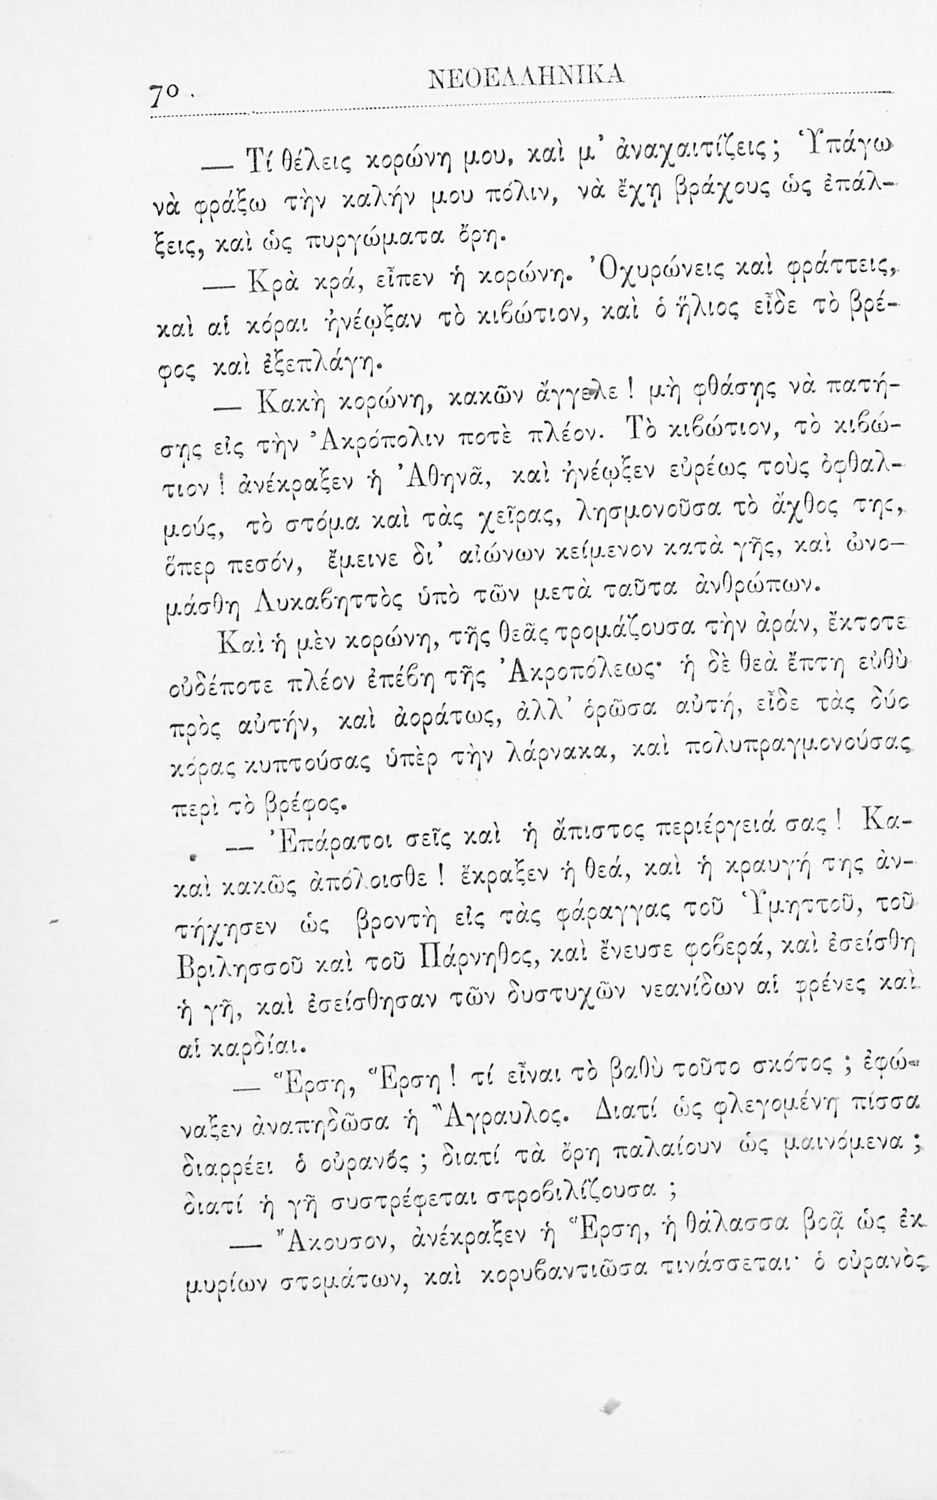 70
ΝΕΟΕΛΛΗΝΙΚΑ
— Τί θέλεις κορώνη μου, καὶ μ’ ἀναχαιτίζεις; Ὑπάγω
νὰ φράξω τὴν καλήν μου πόλιν, νὰ ἔχῃ βράχους ὡς ἐπάλ-
ξεις, καὶ ὡς πυργώματα ὄρη.
— Κρὰ κρά, εἶπεν ἡ κορώνη. Ὀχυρώνεις καὶ φράττεις,
καὶ αἱ κόραι ἠνέῳξαν τὸ κιβώτιον, καὶ ὁ ἥλιος εἶδε τὸ βρέ-
φος καὶ ἐξεπλάγη.
— Κακὴ κορώνη, κακῶν ἄγγελε! μὴ φθάσῃς νὰ πατή-
σῃς εἰς τὴν Ἀκρόπολιν ποτὲ πλέον. Τὸ κιβώτιον, τὸ κιβώ-
τιον! ἀνέκραξεν ἡ Ἀθηνᾶ, καὶ ἠνέῳξεν εὐρέως τοὺς ὀφθαλ-
μούς, τὸ στόμα καὶ τὰς χεῖρας, λησμονοῦσα τὸ ἄχθος της,
ὅπερ πεσόν, ἔμεινε δι’ αἰώνων κείμενον κατὰ γῆς, καὶ ὠνο-
μάσθη Λυκαβηττὸς ὑπὸ τῶν μετὰ ταῦτα ἀνθρώπων.
Καὶ ἡ μὲν κορώνη, τῆς θεᾶς τρομάζουσα τὴν ἀράν, ἔκτοτε
οὐδέποτε πλέον ἐπέβη τῆς Ἀκροπόλεως· ἡ δὲ θεὰ ἔπτη εὐθὺ
πρὸς αὐτήν, καὶ ἀοράτως, ἀλλ’ ὁρῶσα αὐτή, εἶδε τὰς δύο
κόρας κυπτούσας ὑπὲρ τὴν λάρνακα, καὶ πολυπραγμονούσας
περὶ τὸ βρέφος.
— Ἐπάρατοι σεῖς καὶ ἡ ἄπιστος περιέργειά σας! Κα-
καὶ κακῶς ἀπόλοισθε! ἔκραξεν ἡ θεά, καὶ ἡ κραυγή της ἀν-
τήχησεν ὡς βροντὴ εἰς τὰς φάραγγας τοῦ Ὑμηττοῦ, τοῦ
Βριλησσοῦ καὶ τοῦ Πάρνηθος, καὶ ἔνευσε φοβερά, καὶ ἐσείσθη
ἡ γῆ, καὶ ἐσείσθησαν τῶν δυστυχῶν νεανίδων αἱ φρένες καὶ
αἱ καρδίαι.
— Ἔρση, Ἔρση! τί εἶναι τὸ βαθὺ τοῦτο σκότος; ἐφώ-
ναξεν ἀναπηδῶσα ἡ Ἄγραυλος. Διατί ὡς φλεγομένη πίσσα
διαρρέει ὁ οὐρανός; διατί τὰ ὄρη παλαίουν ὡς μαινόμενα;
διατί ἡ γῆ συστρέφεται στροβιλίζουσα;
— Ἄκουσον, ἀνέκραξεν ἡ Ἔρση, ἡ θάλασσα βοᾷ ὡς ἐκ
μυρίων στομάτων, καὶ κορυβαντιῶσα τινάσσεται· ὁ οὐρανὸς